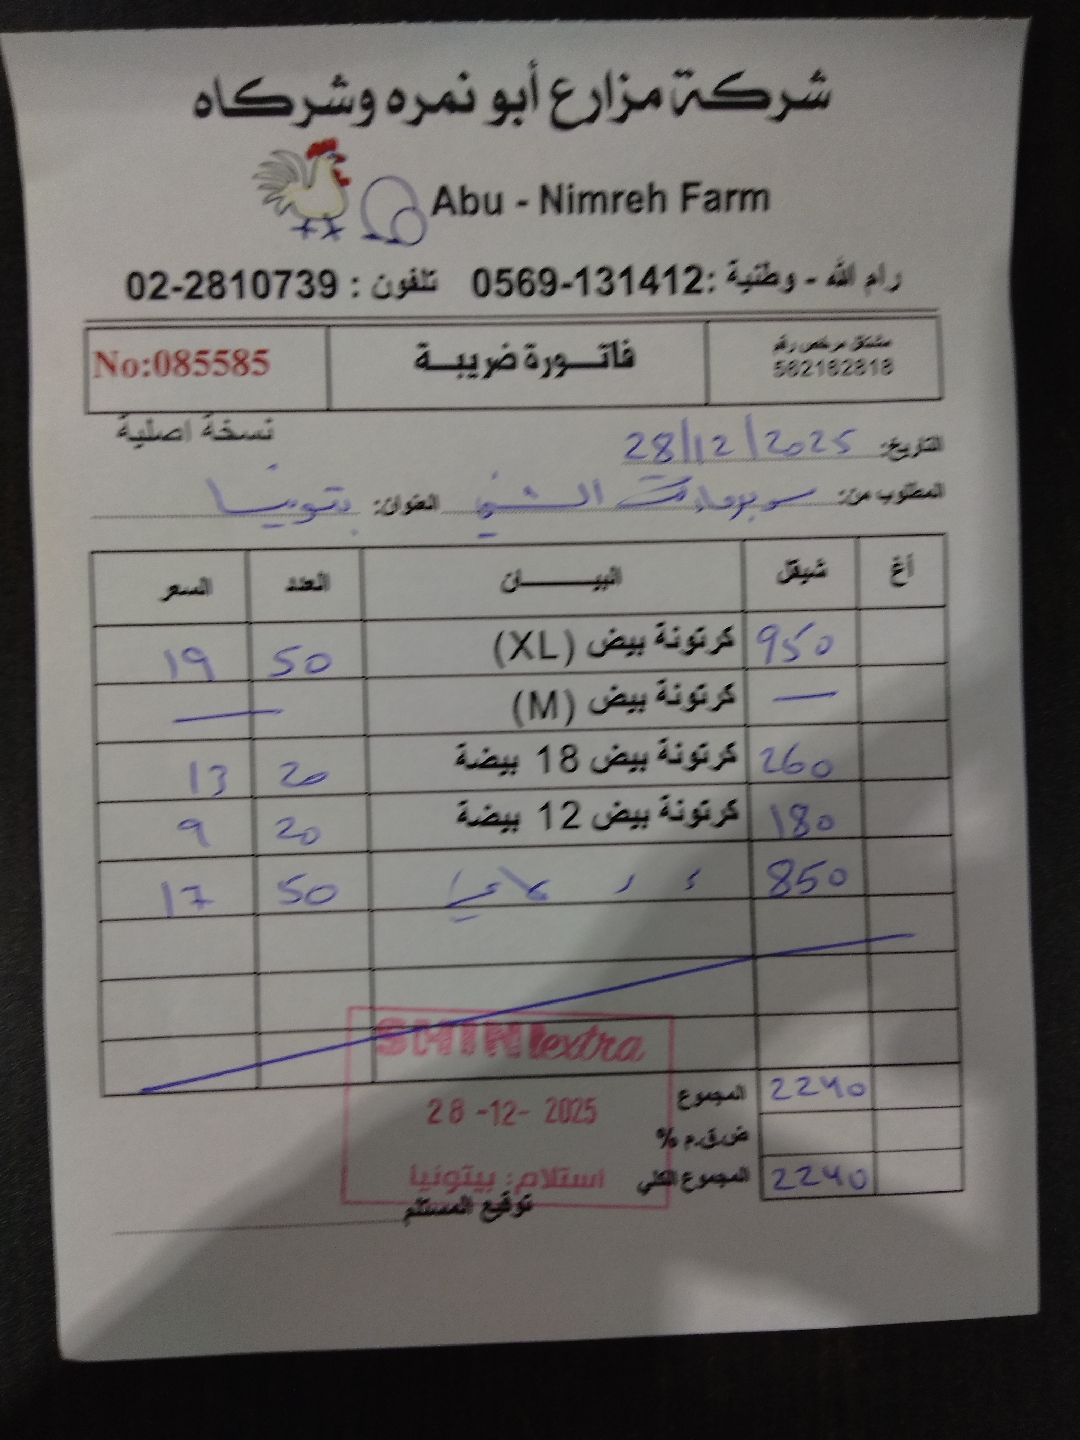 شركة مزارع أبو نمره وشركاه
Abu - Nimreh Farm
رام الله - وطنية :0569-131412 تلفون : 02-2810739
مشتغل مرخص رقم
562162818
فاتــورة ضريبــة
No:085585
نسخة اصلية
التاريخ: 28/12/2025
المطلوب من: سوبرماركت الشني العنوان: بتونيا
أغ شيقل البيــــــــان العدد السعر
950 كرتونة بيض (XL) 50 19
— كرتونة بيض (M) —
260 كرتونة بيض 18 بيضة 20 13
180 كرتونة بيض 12 بيضة 20 9
850 50 17
SHINI extra
28 -12- 2025
استلام: بيتونيا
المجموع 2240
ض.ق.م %
المجموع الكلي 2240
توقيع المستلم